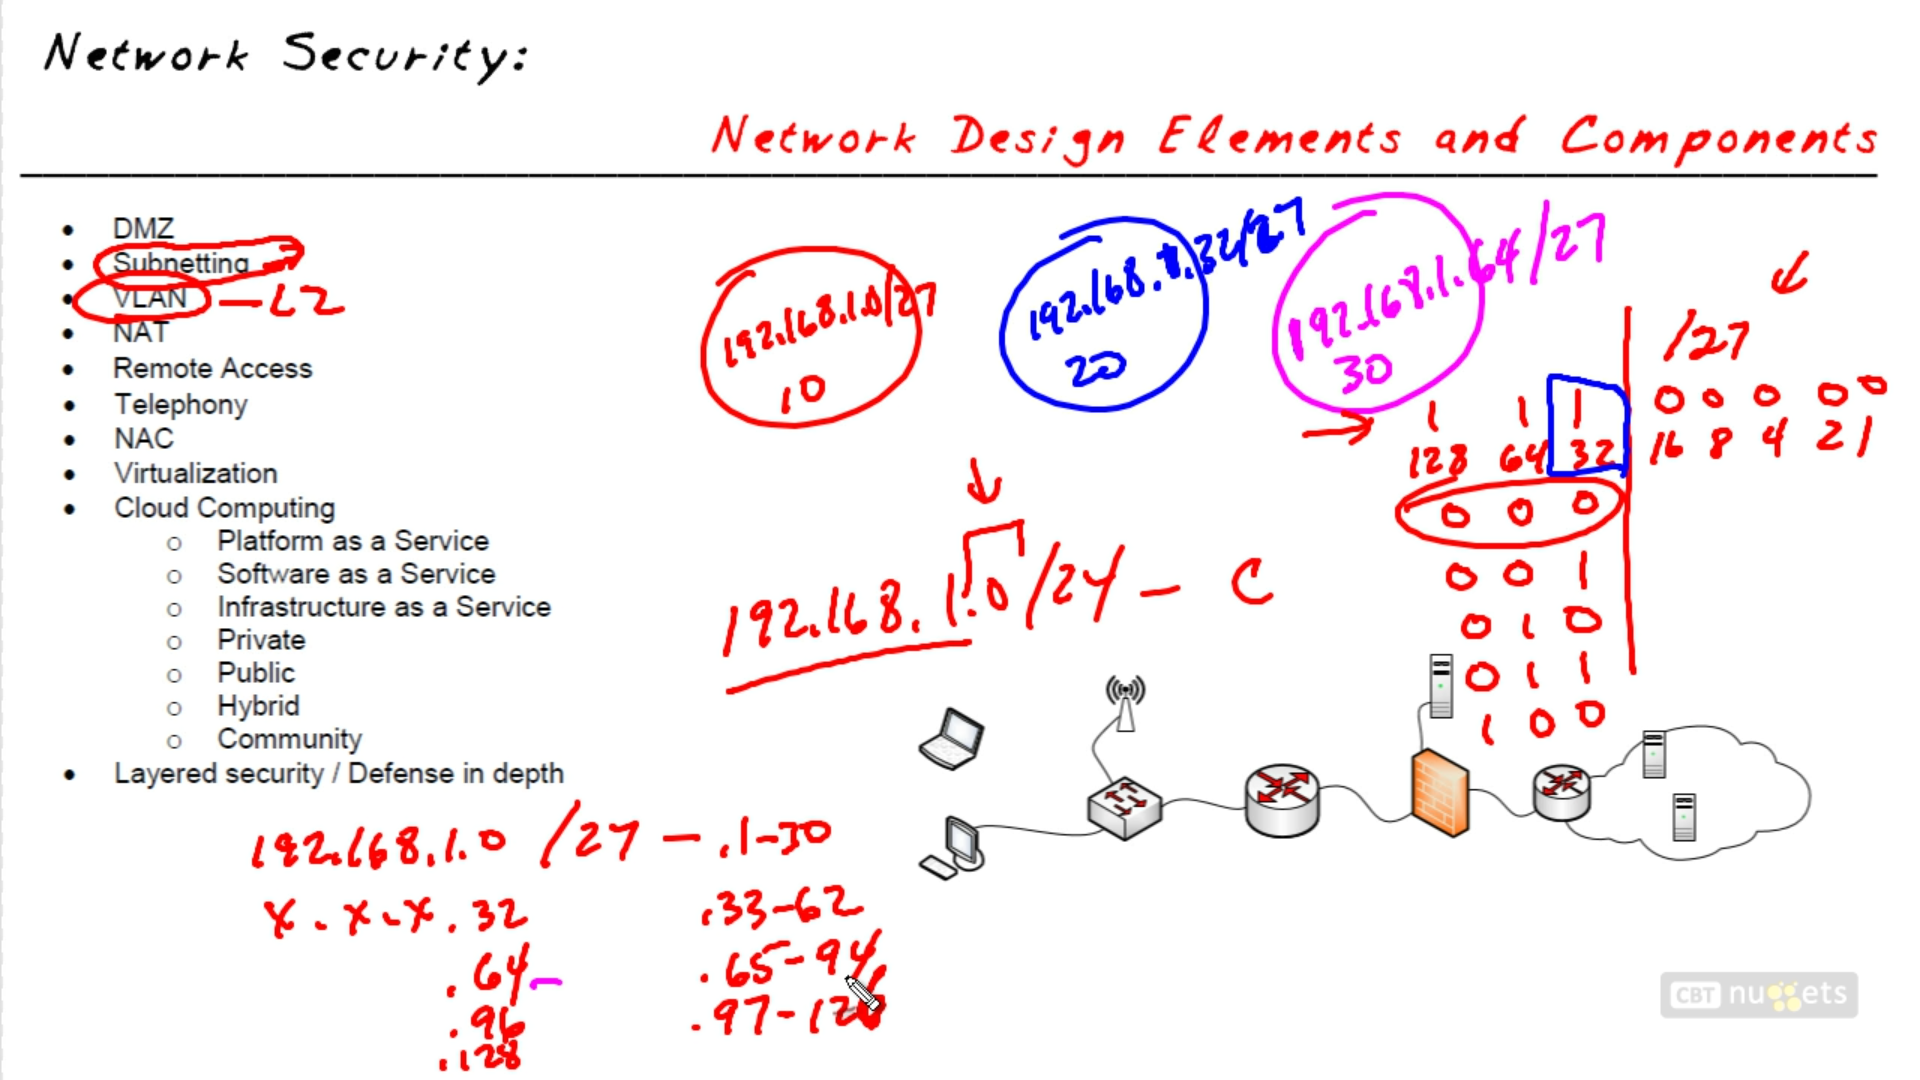 Network Security:
Network Design Elements and Components
• DMZ
• Subnetting
• VLAN – L2
• NAT
• Remote Access
• Telephony
• NAC
• Virtualization
• Cloud Computing
o Platform as a Service
o Software as a Service
o Infrastructure as a Service
o Private
o Public
o Hybrid
o Community
• Layered security / Defense in depth
192.168.1.0/27
10
192.168.1.32/27
20
192.168.1.64/27
30
/27
1 1 1 0 0 0 0 0
128 64 32 16 8 4 2 1
0 0 0
0 0 1
0 1 0
0 1 1
1 0 0
192.168.1.0/24 – C
192.168.1.0 /27 – .1-30
x.x.x.32 .33-62
.64 – .65-94
.96 .97-
.128
CBT nuggets